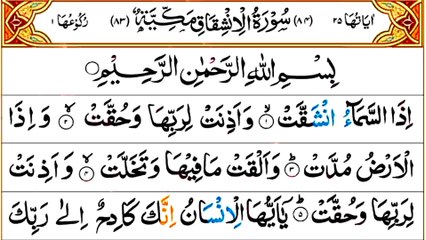 اٰیَاتُهَا ۲۵ (۸۴) سُوْرَةُ الْاِنْشِقَاقِ مَكِّيَّةٌ (۸۳) رُكُوْعُهَا ۱
بِسْمِ اللّٰهِ الرَّحْمٰنِ الرَّحِيْمِ
اِذَا السَّمَآءُ انْشَقَّتْ ۙ۱ وَاَذِنَتْ لِرَبِّهَا وَحُقَّتْ ۙ۲ وَاِذَا
الْاَرْضُ مُدَّتْ ۙ۳ وَاَلْقَتْ مَا فِيْهَا وَتَخَلَّتْ ۙ۴ وَاَذِنَتْ
لِرَبِّهَا وَحُقَّتْ ۙ۵ يٰٓاَيُّهَا الْاِنْسَانُ اِنَّكَ كَادِحٌ اِلٰى رَبِّكَ